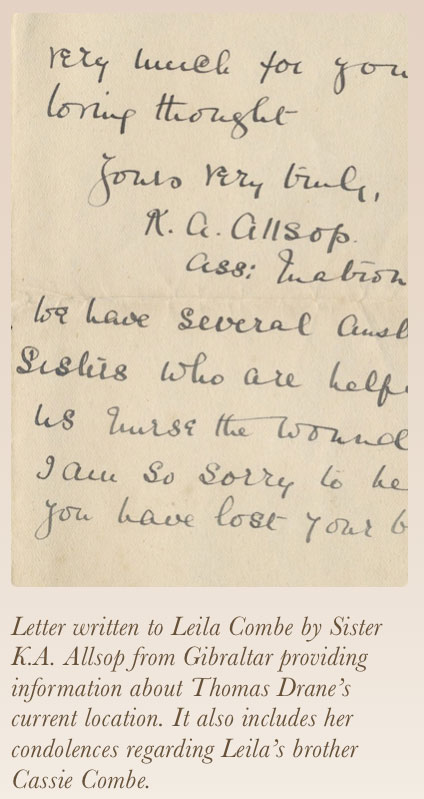 very much for you
loving thought
Yours very truly,
K. A. Allsop.
Ass: Matron
We have several Aust
Sisters who are helpi
us nurse the wound
I am so sorry to he
you have lost your b
Letter written to Leila Combe by Sister
K.A. Allsop from Gibraltar providing
information about Thomas Drane’s
current location. It also includes her
condolences regarding Leila’s brother
Cassie Combe.